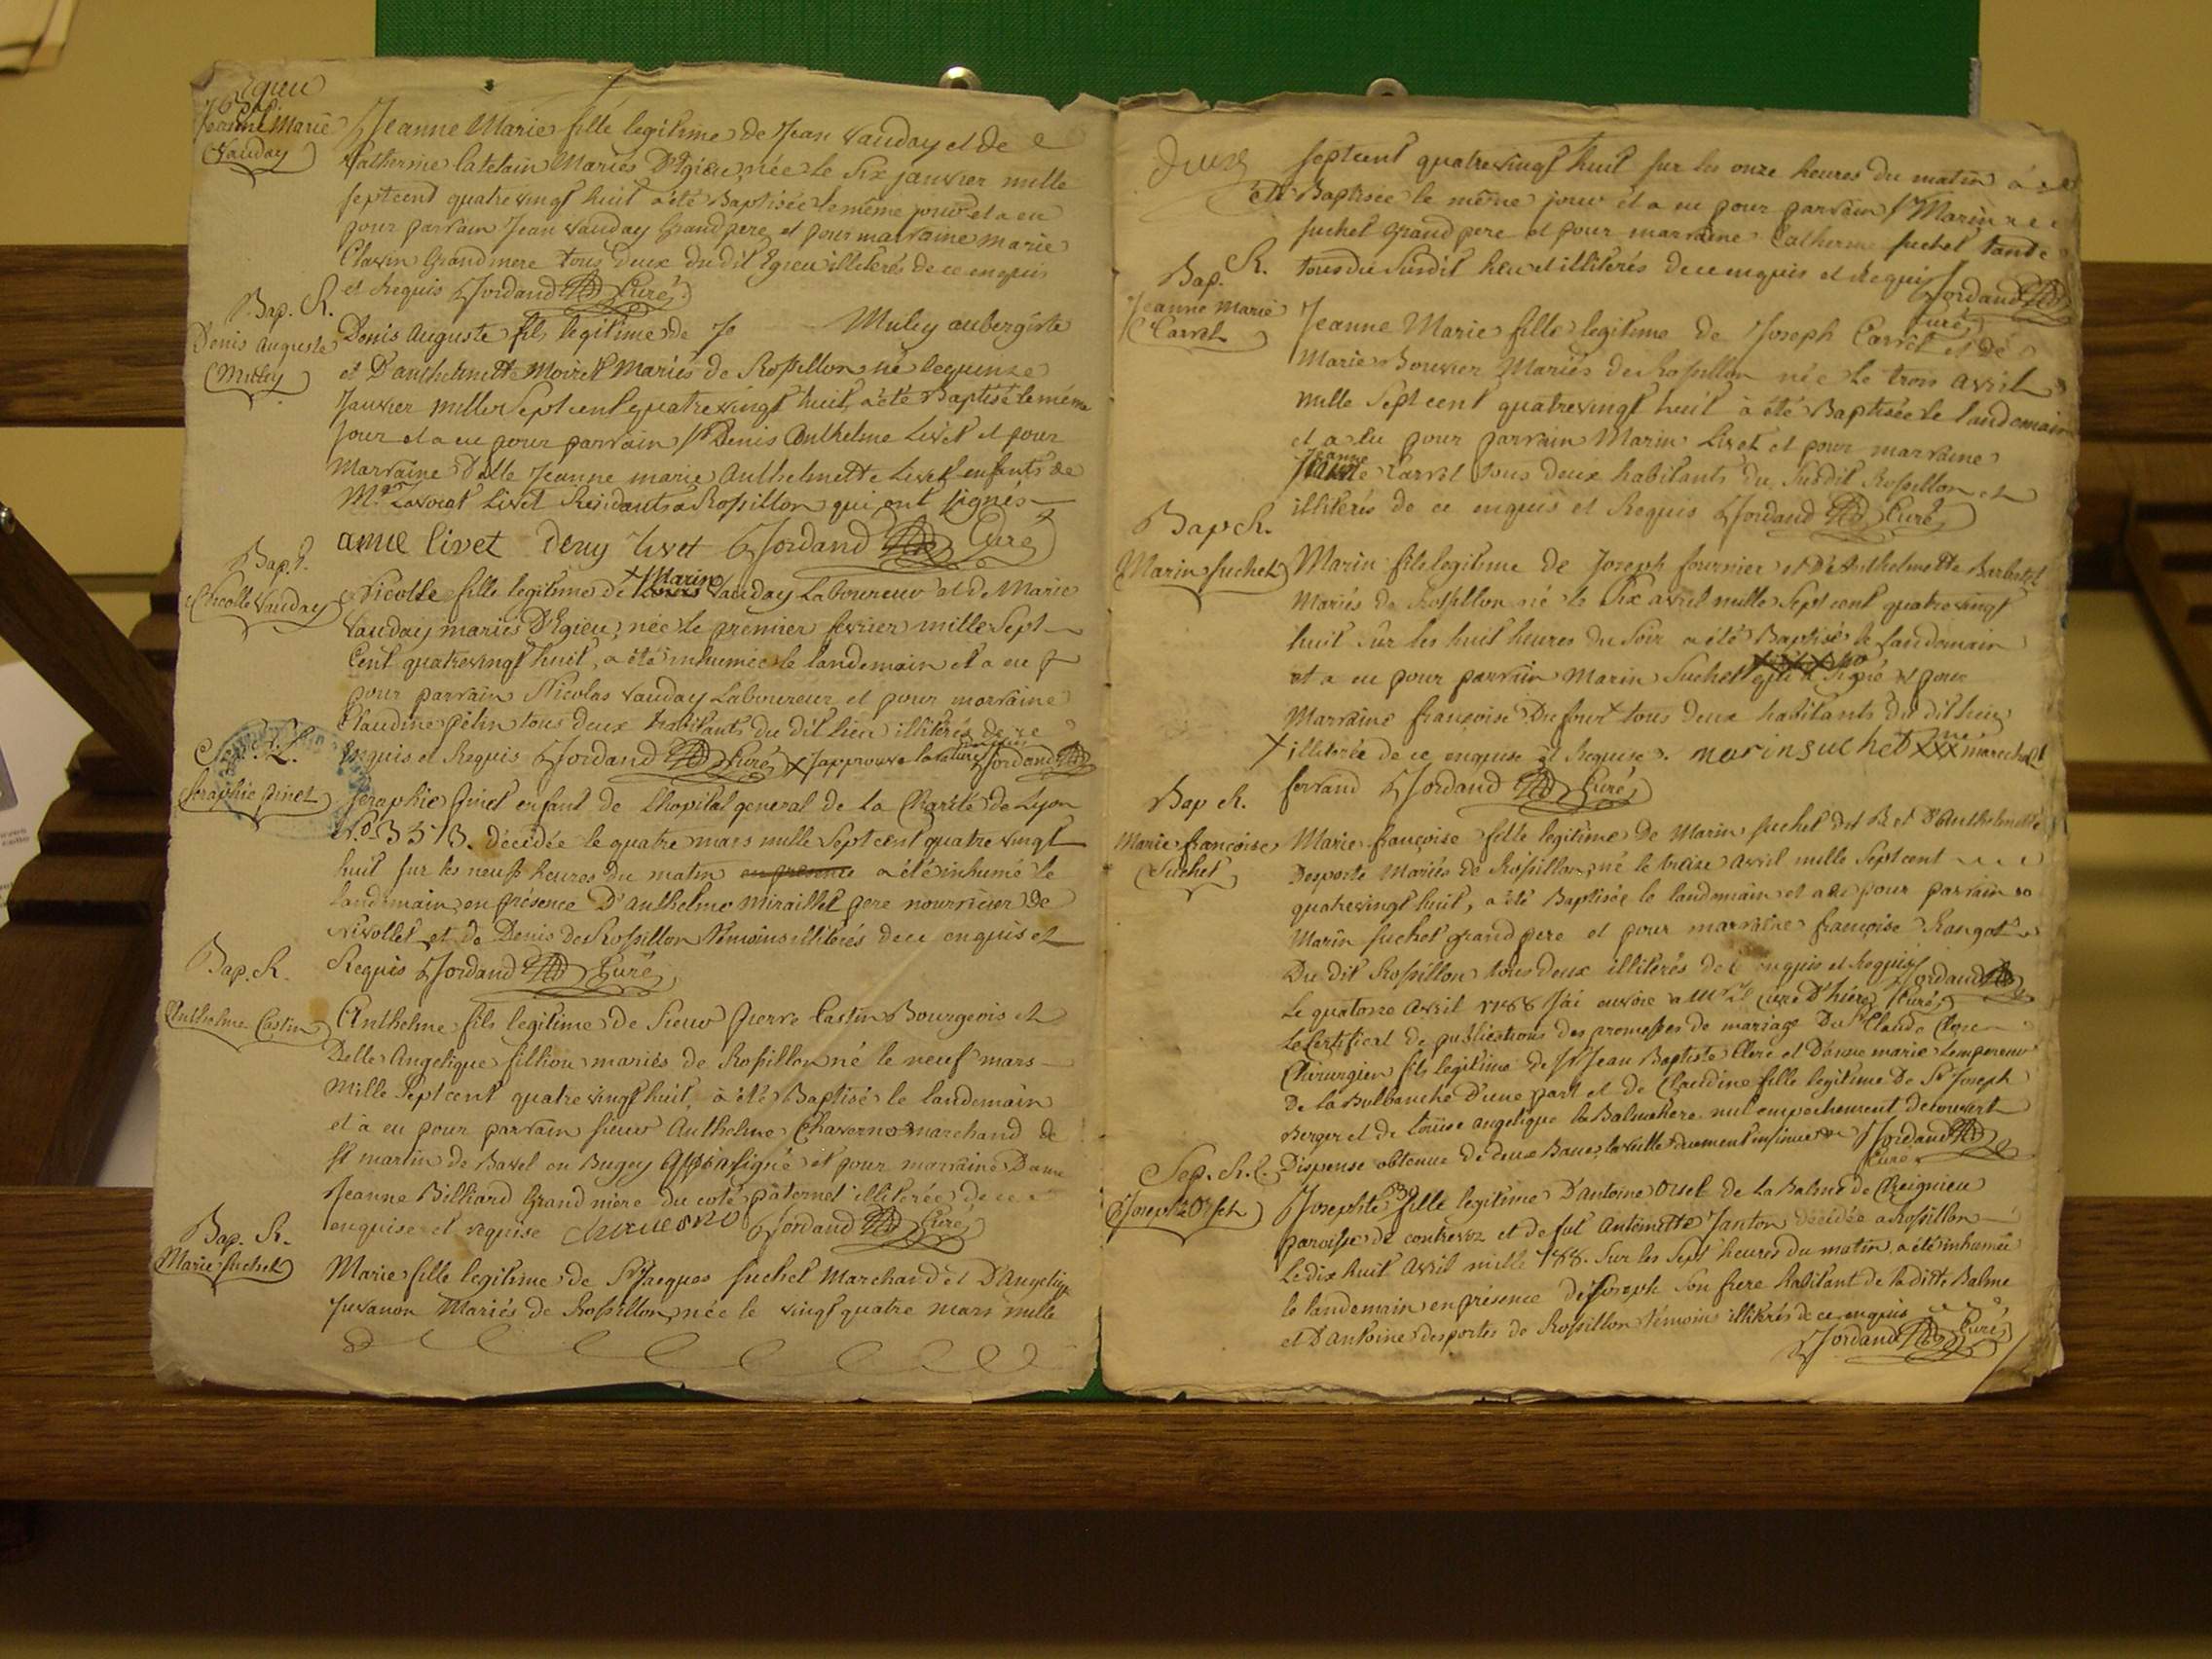 Egieu
Bap.
Jeanne Marie
Vauday
Jeanne Marie fille legitime de Jean Vauday et de
Catherine Catelain Mariés D'Egieu, née le Six janvier mille
septcend quatrevingt huit a été Baptisée le même jour et a eu
pour parrain Jean Vauday Grand pere et pour marraine marie
Clavin Grand mere tous deux du dit Egieu illiterés de ce enquis
et Requis Jordand Curé
Bap. R.
Denis Auguste
Muley
Denis Auguste fils legitime de Je Muley aubergiste
et D'anthelmette Moiret Mariés de Rossillon né le quinze
Janvier mille Sept cent quatrevingt huit, a été Baptisé le même
jour et a eu pour parrain Sr Denis Anthelme Livet et pour
Marraine Delle Jeanne marie Anthelmette Livet enfants de
Mr. Lavocat Livet Residants a Rossillon qui ont signés
anne livet deny livet Jordand Curé
Bap.
Nicolle Vauday
Nicolle fille legitime de + Marin Vauday Laboureur et de Marie
Vauday mariés D'Egieu, née le premier fevrier mille Sept
Cent quatrevingt huit, a été inhumée le landemain et a eu
pour parrain Nicolas Vauday Laboureur et pour marraine
Claudine pelin tous deux habitants du dit lieu illiterés de ce
enquis et Requis Jordand Curé + J'approuve la rature Jordand
Seraphie pinet
Seraphie pinet enfant de l'hopital general de la Charité de Lyon
No. 3513. décédée le quatre mars mille Sept cent quatre vingt
huit sur les neuf heures du matin a été inhumé le
landemain en présence D'anthelme miraillet pere nourricier de
Nivollet et de Denis de Rossillon témoins illiterés de ce enquis et
Requis Jordand Curé
Bap. R.
Anthelme Castin
Anthelme fils legitime de Sieur pierre Castin Bourgeois et
Delle Angelique fillion mariés de Rossillon né le neuf mars
mille Sept cent quatre vingt huit, a été Baptisé le landemain
et a eu pour parrain sieur Anthelme Chaverno marchand de
st martin de Bavel en Bugey qui a signé et pour marraine Dame
Jeanne Billiard Grand mere du coté paternel illiterée de ce
enquise et requise Jordand Curé
Bap. R.
Marie Suchet
Marie fille legitime de Sr Jacques Suchet Marchand et D'Angelique
Juvanon Mariés de Rossillon, née le vingt quatre mars mille
septcent quatrevingt huit sur les onze heures du matin a
été Baptisée le même jour et a eu pour parrain Sr Marin
suchet Grand pere et pour marraine Catherine suchet tante
tous du Susdit lieu et illiterés de ce enquis et Requis Jordand
Curé
Bap. R.
Jeanne Marie
Carrel
Jeanne Marie fille legitime de Joseph Carrel et de
Marie Bouvier Mariés de Rossillon née le trois avril
mille Sept cent quatrevingt huit a été Baptisée le landemain
et a eu pour parrain Marin Livet et pour marraine
Jeanne Carrel tous deux habitants du Susdit Rossillon et
illiterés de ce enquis et Requis Jordand Curé
Bap R.
Marin Suchet
Marin fils legitime de Joseph fournier et D'Anthelmette Barbolet
Mariés de Rossillon né le Six avril mille Sept cent quatrevingt
huit sur les huit heures du Soir a été Baptisé le landemain
et a eu pour parrain Marin Suchet qui a Signé et pour
Marraine françoise Dufour + tous deux habitants du dit lieu
+ illiterée de ce enquise et Requise. marin suchet me marechal
ferrand Jordand Curé
Bap R.
Marie françoise
Suchet
Marie françoise fille legitime de Marin Suchet et D'Anthelmette
Desporte Mariés de Rossillon, né le treize avril mille Sept cent
quatrevingt huit, a été Baptisée le landemain et a eu pour parrain
Marin Suchet grand pere et pour marraine françoise Rangot
Du dit Rossillon tous deux illiterés de ce enquis et Requis Jordand
Curé
Le quatorze avril 1788 J'ai envoié a Mr Le Curé D'hiere
Le Certificat de publications des promesses de mariage Du Sr Claude Clere
Chirurgien fils legitime de Sr Jean Baptiste Clere et D'anne marie Lempereur
De la Balbanche D'une part et de Claudine fille legitime De Sr Joseph
Berger et de Louise angelique la Balmotiere nul empechement decouvert
Dispense obtenue de deux Bans, laville dument insinuée Jordand
Curé
Sep. R.
Josephte Orsel
Josephte fille legitime D'antoine Orsel de La Balme de Cheignieu
paroisse de contrevoz et de fut Antoinette Janton décédée a Rossillon
Le dix huit avril mille 788. Sur les Sept heures du matin a été inhumée
le landemain en présence de Joseph Son frere habitant de la ditte Balme
et D'antoine desportes de Rossillon témoins illiterés de ce enquis
Jordand Curé